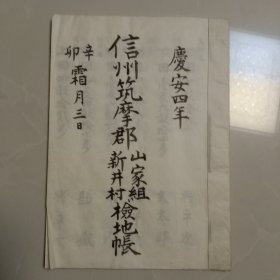 慶安四年
信州筑摩郡山家組新井村檢地帳
辛卯霜月三日